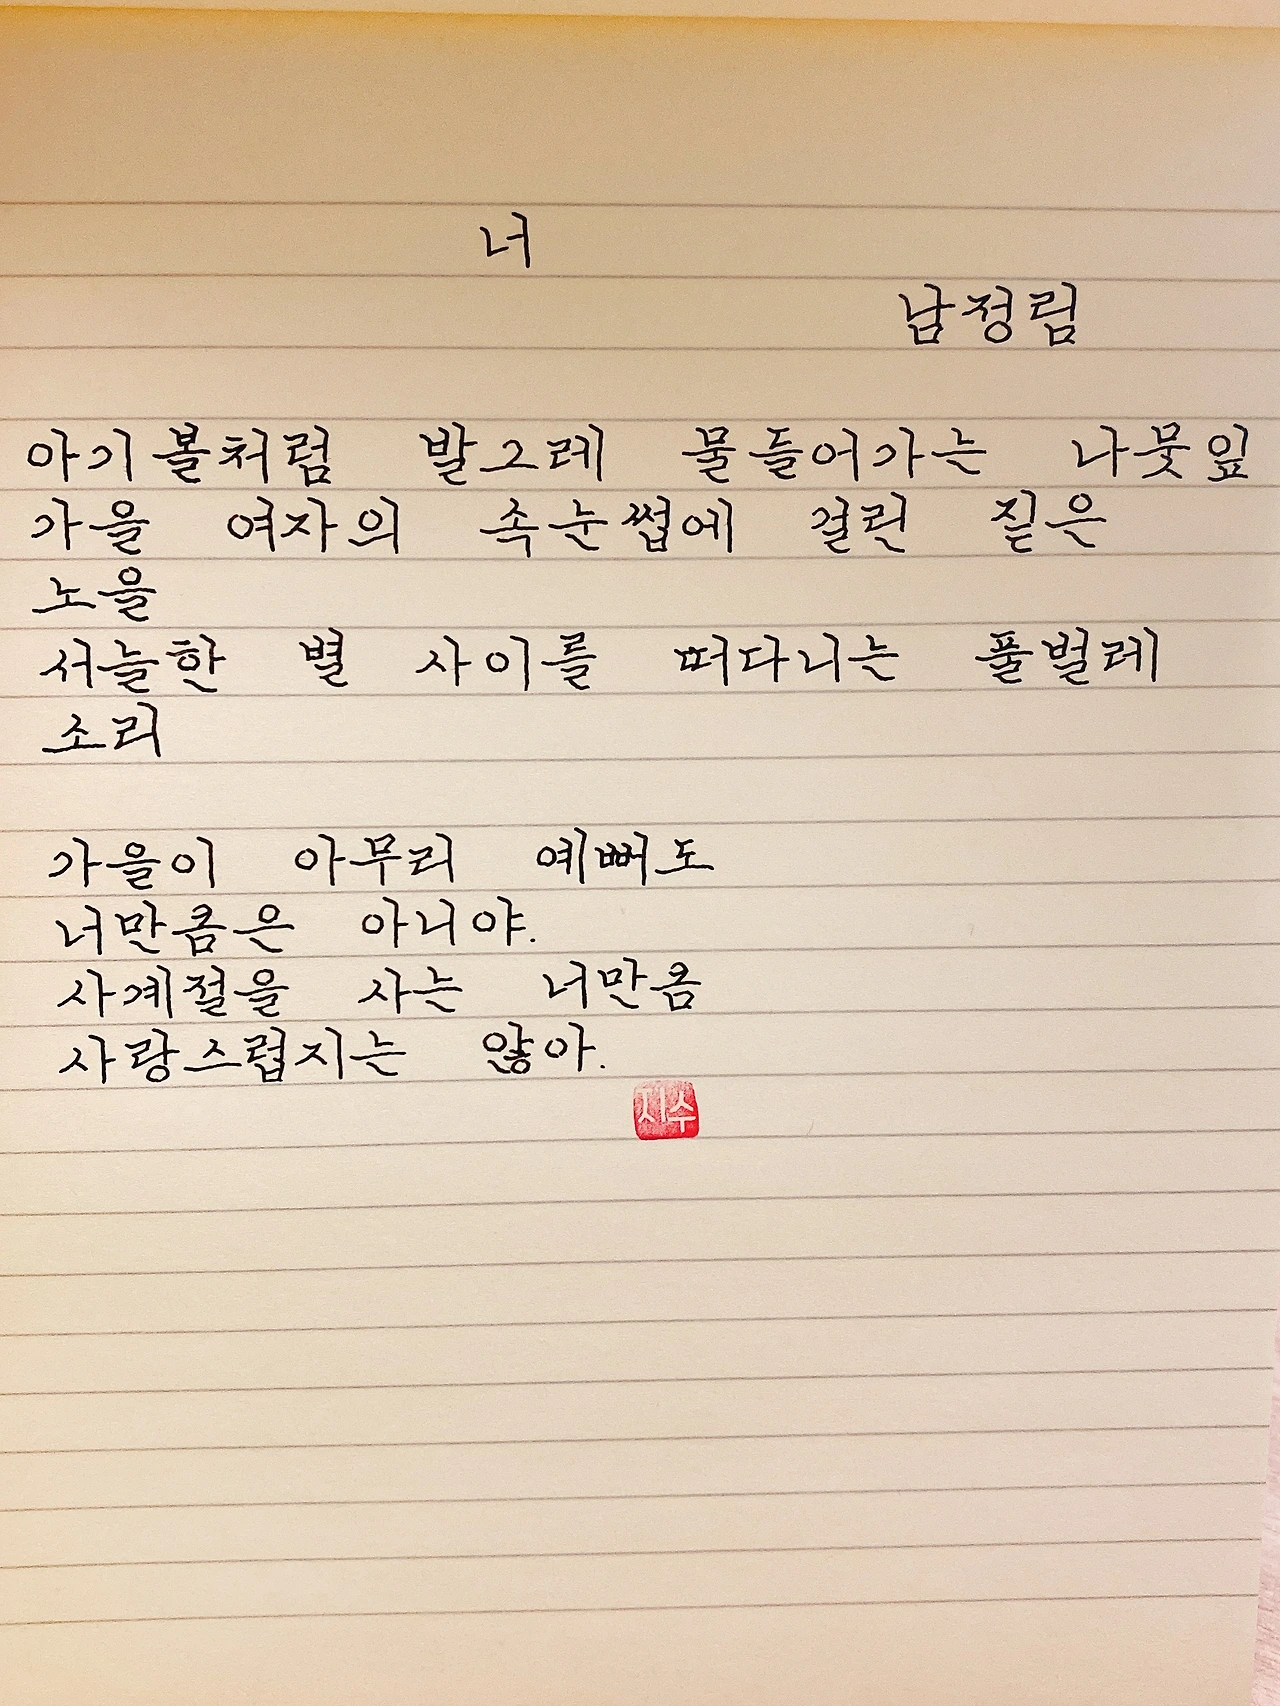 너
남정림
아기볼처럼 발그레 물들어가는 나뭇잎
가을 여자의 속눈썹에 걸린 짙은
노을
서늘한 별 사이를 떠다니는 풀벌레
소리
가을이 아무리 예뻐도
너만큼은 아니야.
사계절을 사는 너만큼
사랑스럽지는 않아.
지수